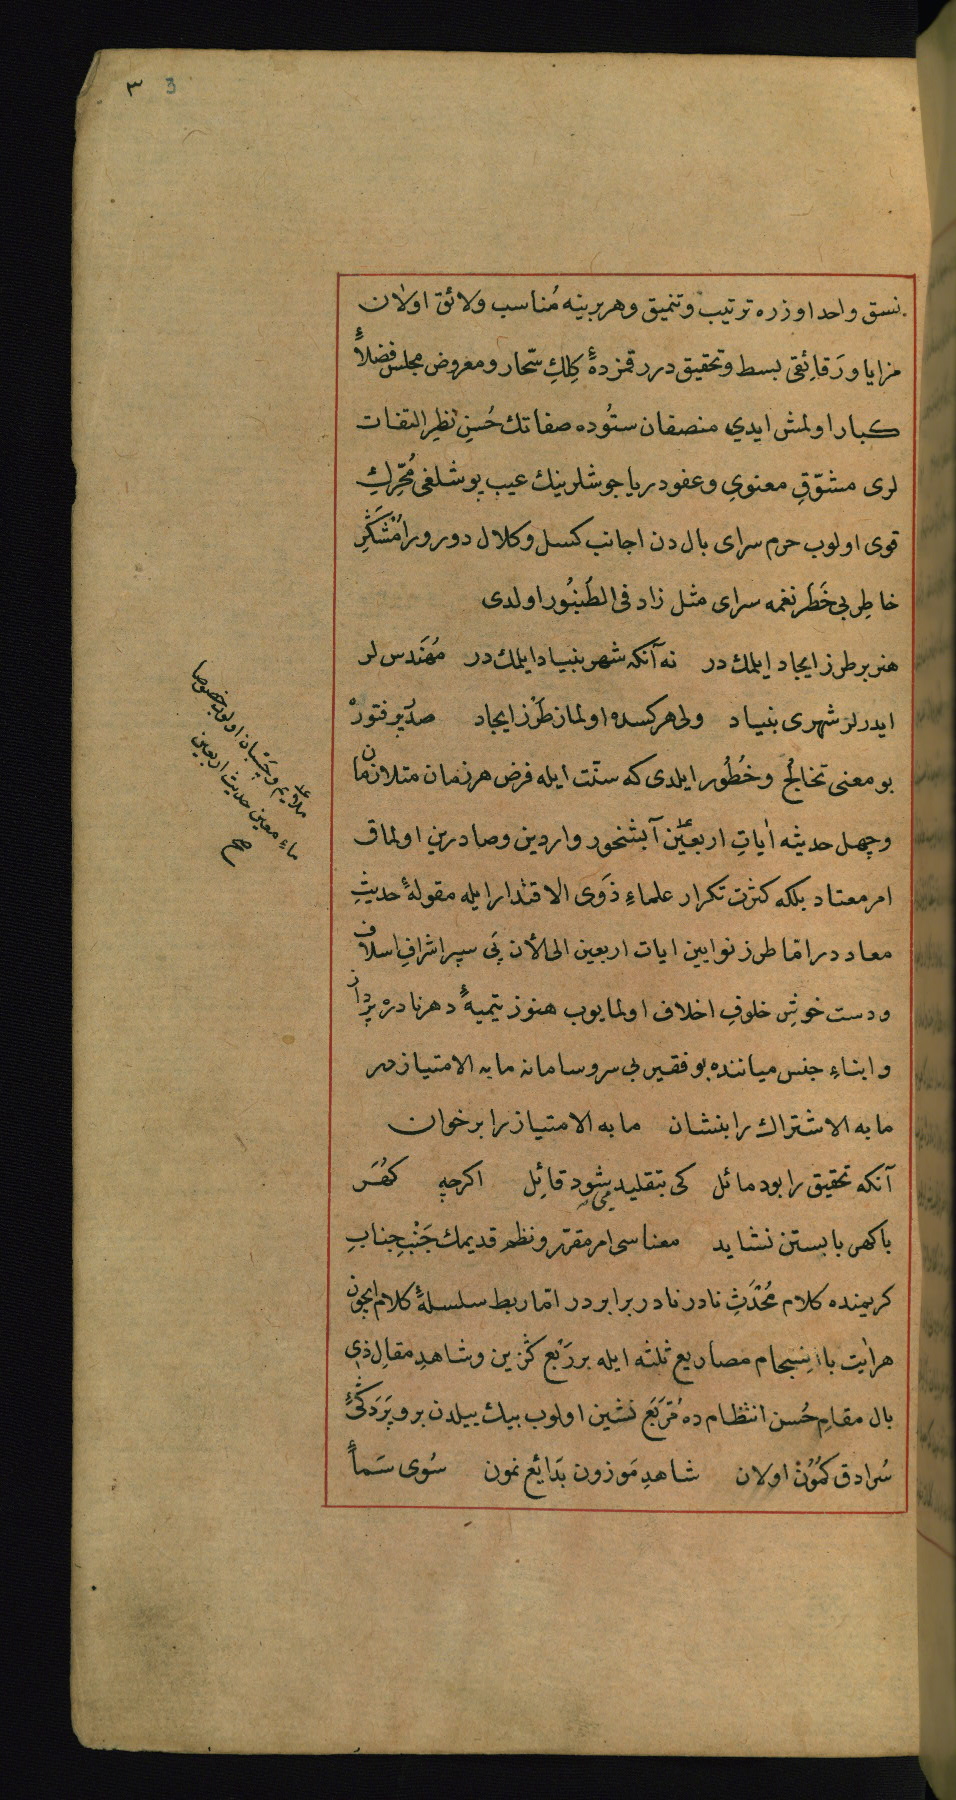 ٣ 3
نسق واحد اوزره ترتيب وتنميق وهر برينه مُناسب ولائق اولان
مزايا ورَقائِقى بسط وتحقيق در رقمزدهٔ كِلكِ سّحار ومعروض مجلس فضلاءِ
كبار اولمش ايدى منصفان ستُوده صفاتك حُسنِ نظرِ التفات
لرى مشوّقِ معنوىِ وعفو دريا جوشلرينك عيب پوشلغى مُحّرِكِ
قوى اولوب حرم سراى بال دن اجانب كسل وكلال دور ورامُشكَرِ
خاطِر بى خَطَر نغمه سراى مثل زاد فى الطَنبُور اولدى
هنر بر طرز ايجاد ايلمك در نه آنكه شهر بنياد ايلمك در مُهَندس لر
ايدرلر شهرى بنياد ولى هر كسده اولماز طَرْز ايجاد صدّيرِ فتورْ
بو معنى تخالُج وخُطُور ايلدى كه سنّت ايله فرض هر زمان متلازمان
وچهل حديثه اٰياتِ اربعين آبشخور واردين وصادرين اولماق
امر معتاد بلكه كثرت تكرار علماءِ ذَوى الاقتدار ايله مقولهٔ حديثِ
معاد در امّا طرز نوايين ايات اربعين الى الأن پَى سپر اشرافِ اسلاف
ودست خوشِ خلوفِ اخلاف اولمايوب هنوز يتيمهٔ دهر نادره پرداز
وابناءِ جنس مياننده بو فقير بى سر وسامانه ما به الامتياز در
ما به الاشتراك را بنشان ما به الامتياز را بر خوان
آنكه تحقيق را بود مائل كى بتقليد مى شود قائِل اكرچه كُهَر
باكهر با بستن نشايد معناسى امر مقرّر ونظم قديمك جَنْبِ جنابِ
كريمنده كلام مُحْدَثِ نادر نادر برابر در امّا ربط سلسلهٔ كلام ايچون
هر اٰيت با انسجام مصاريع ثلثه ايله بر رَبْع كُزين وشاهدِ مقالِ ذى
بال مقامِ حُسن انتظام ده مُرّبَع نشين اولوب بيك ييلدن برو پَرَدكئِ
سُرادق كمُوْن اولان شاهدِ مَوزون بَدَائع نمون سُوى سَماءِ
ملاقيم وچسبان اولور خصوصا
ماءِ معين حديث اربعين
صح